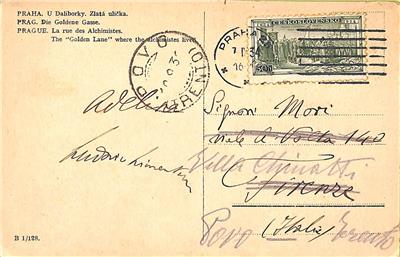 PRAHA. U Daliborky. Zlatá ulička.
PRAG. Die Goldene Gasse.
PRAGUE. La rue des Alchimistes.
The "Golden Lane" where the alchimistes lived.
PRAHA
ČESKOSLOVENSKO
POVO
(TRENTO)
Adelina
Signori Mori
viale A. Volta 140
Villa Chinatti
Firenze
(Italie)
Povo Trento
B 1/128.